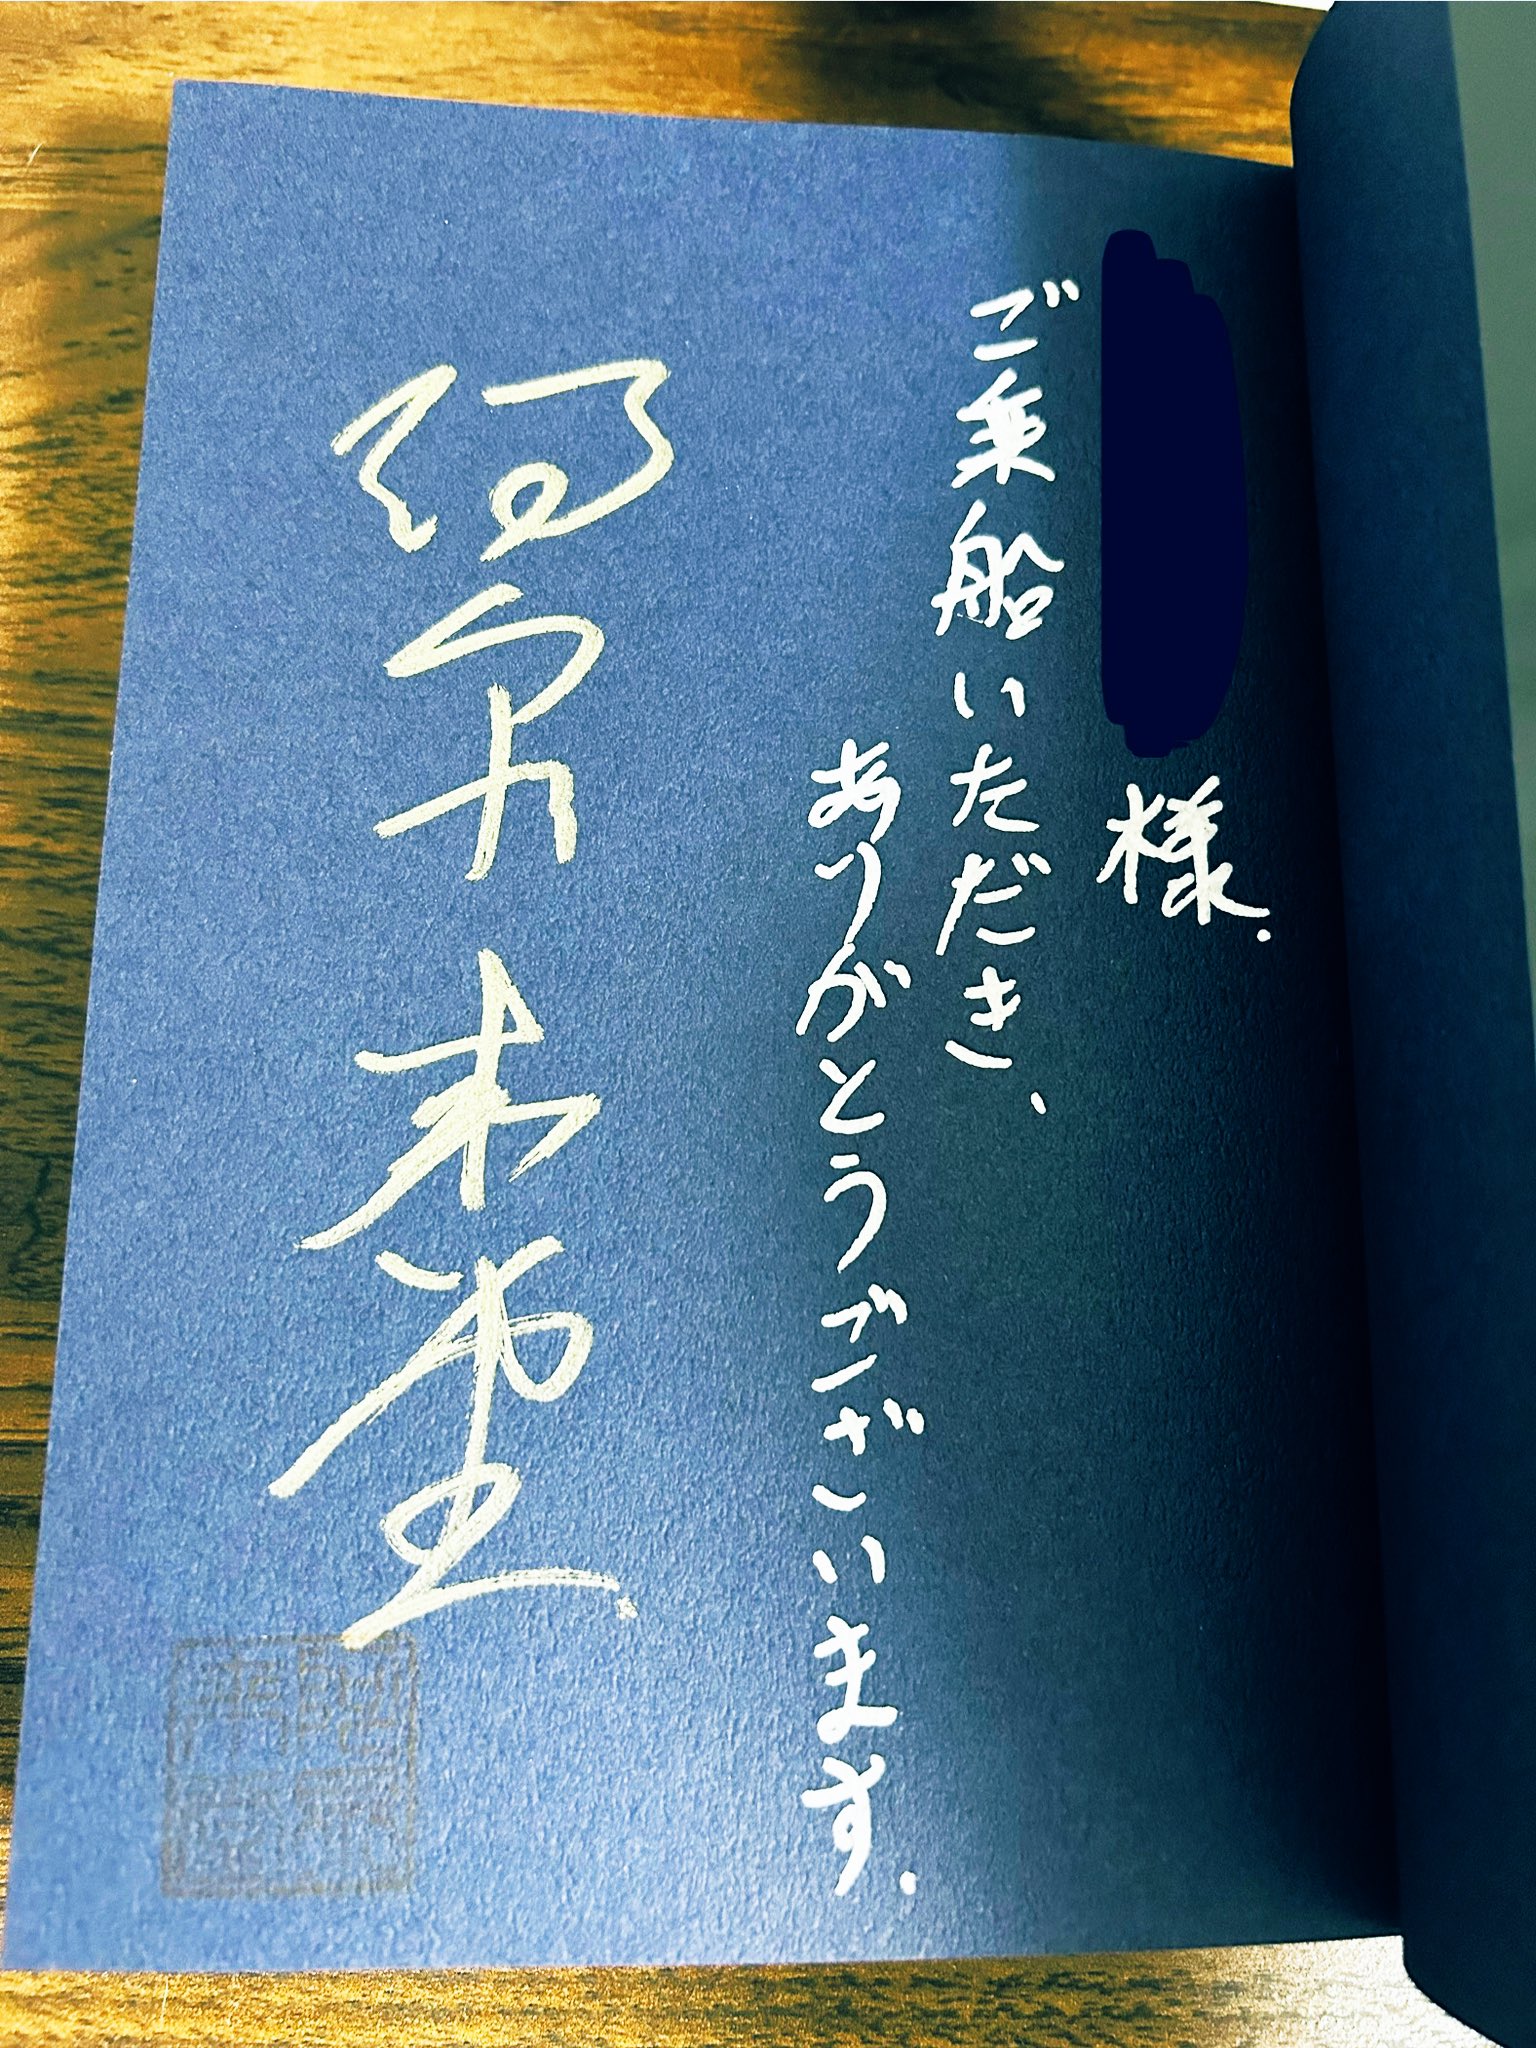 様.
ご乗船いただき、
ありがとうございます.
阿泉来堂.